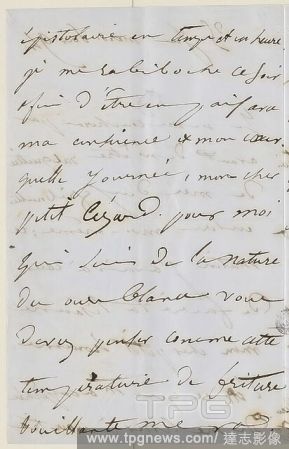 épistolaire en temps et en heure
je me rabiboche ce soir
afin d'être en paix avec
ma conscience & mon cœur
quelle journée, mon cher
petit Cézard. pour moi
qui suis de la nature
du ours blanc vous
devez penser comme cette
température de friture
bouillante me va
TPG
www.tpgnews.com/達志影像